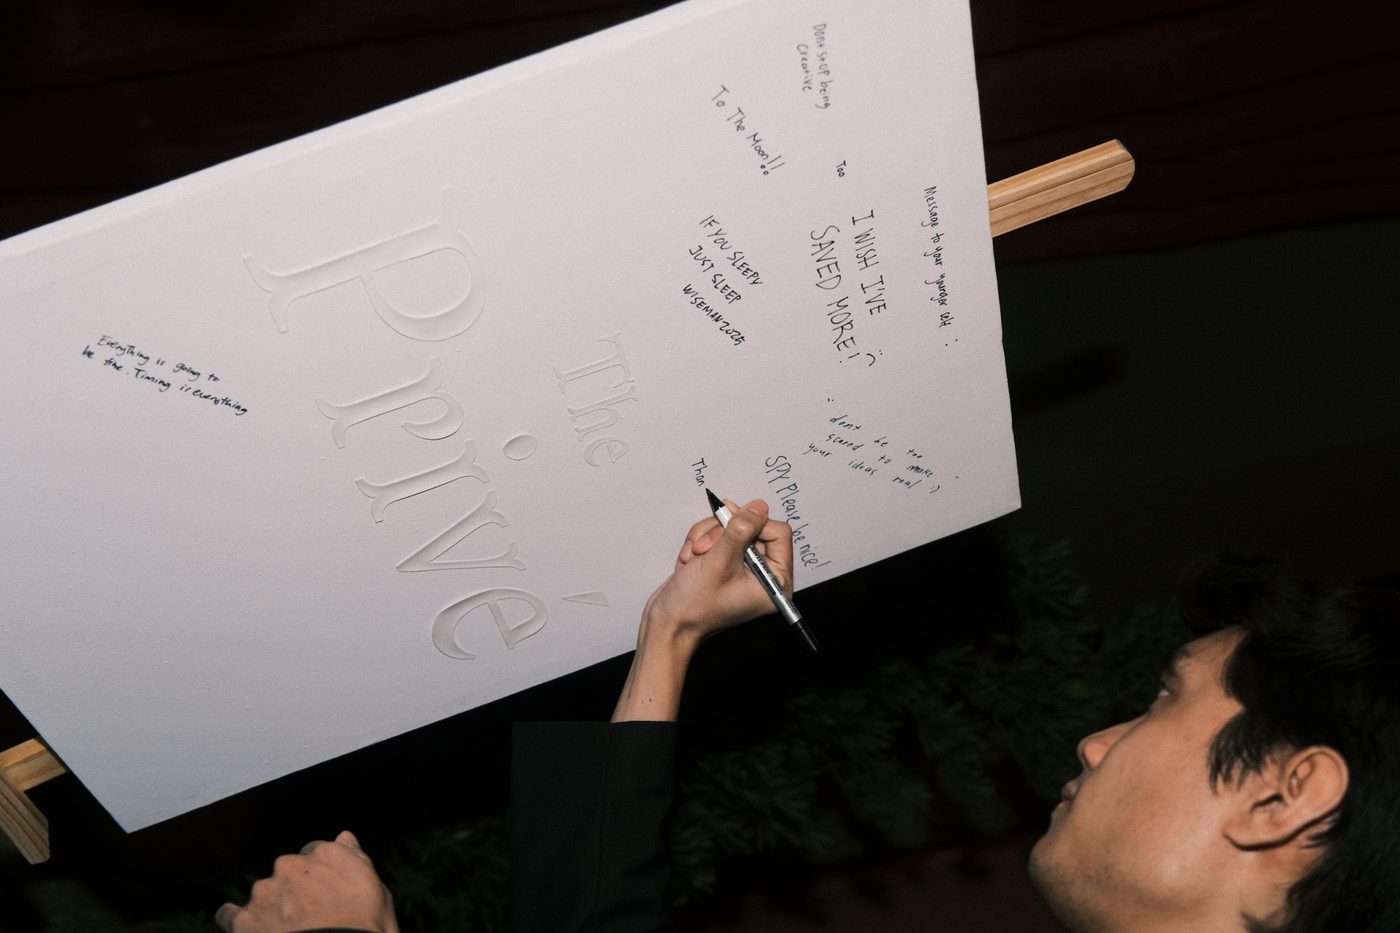 Message to your younger self :
Dont stop being
creative
Too
I WISH I'VE
SAVED MORE!
To The Moon!!
IF YOU SLEEPY
JUST SLEEP
WISEMAN2025
dont be too
scared to make
your ideas real :)
SPY Please be nice!
Than
The
Privé
Everything is going to
be fine. Timing is everything